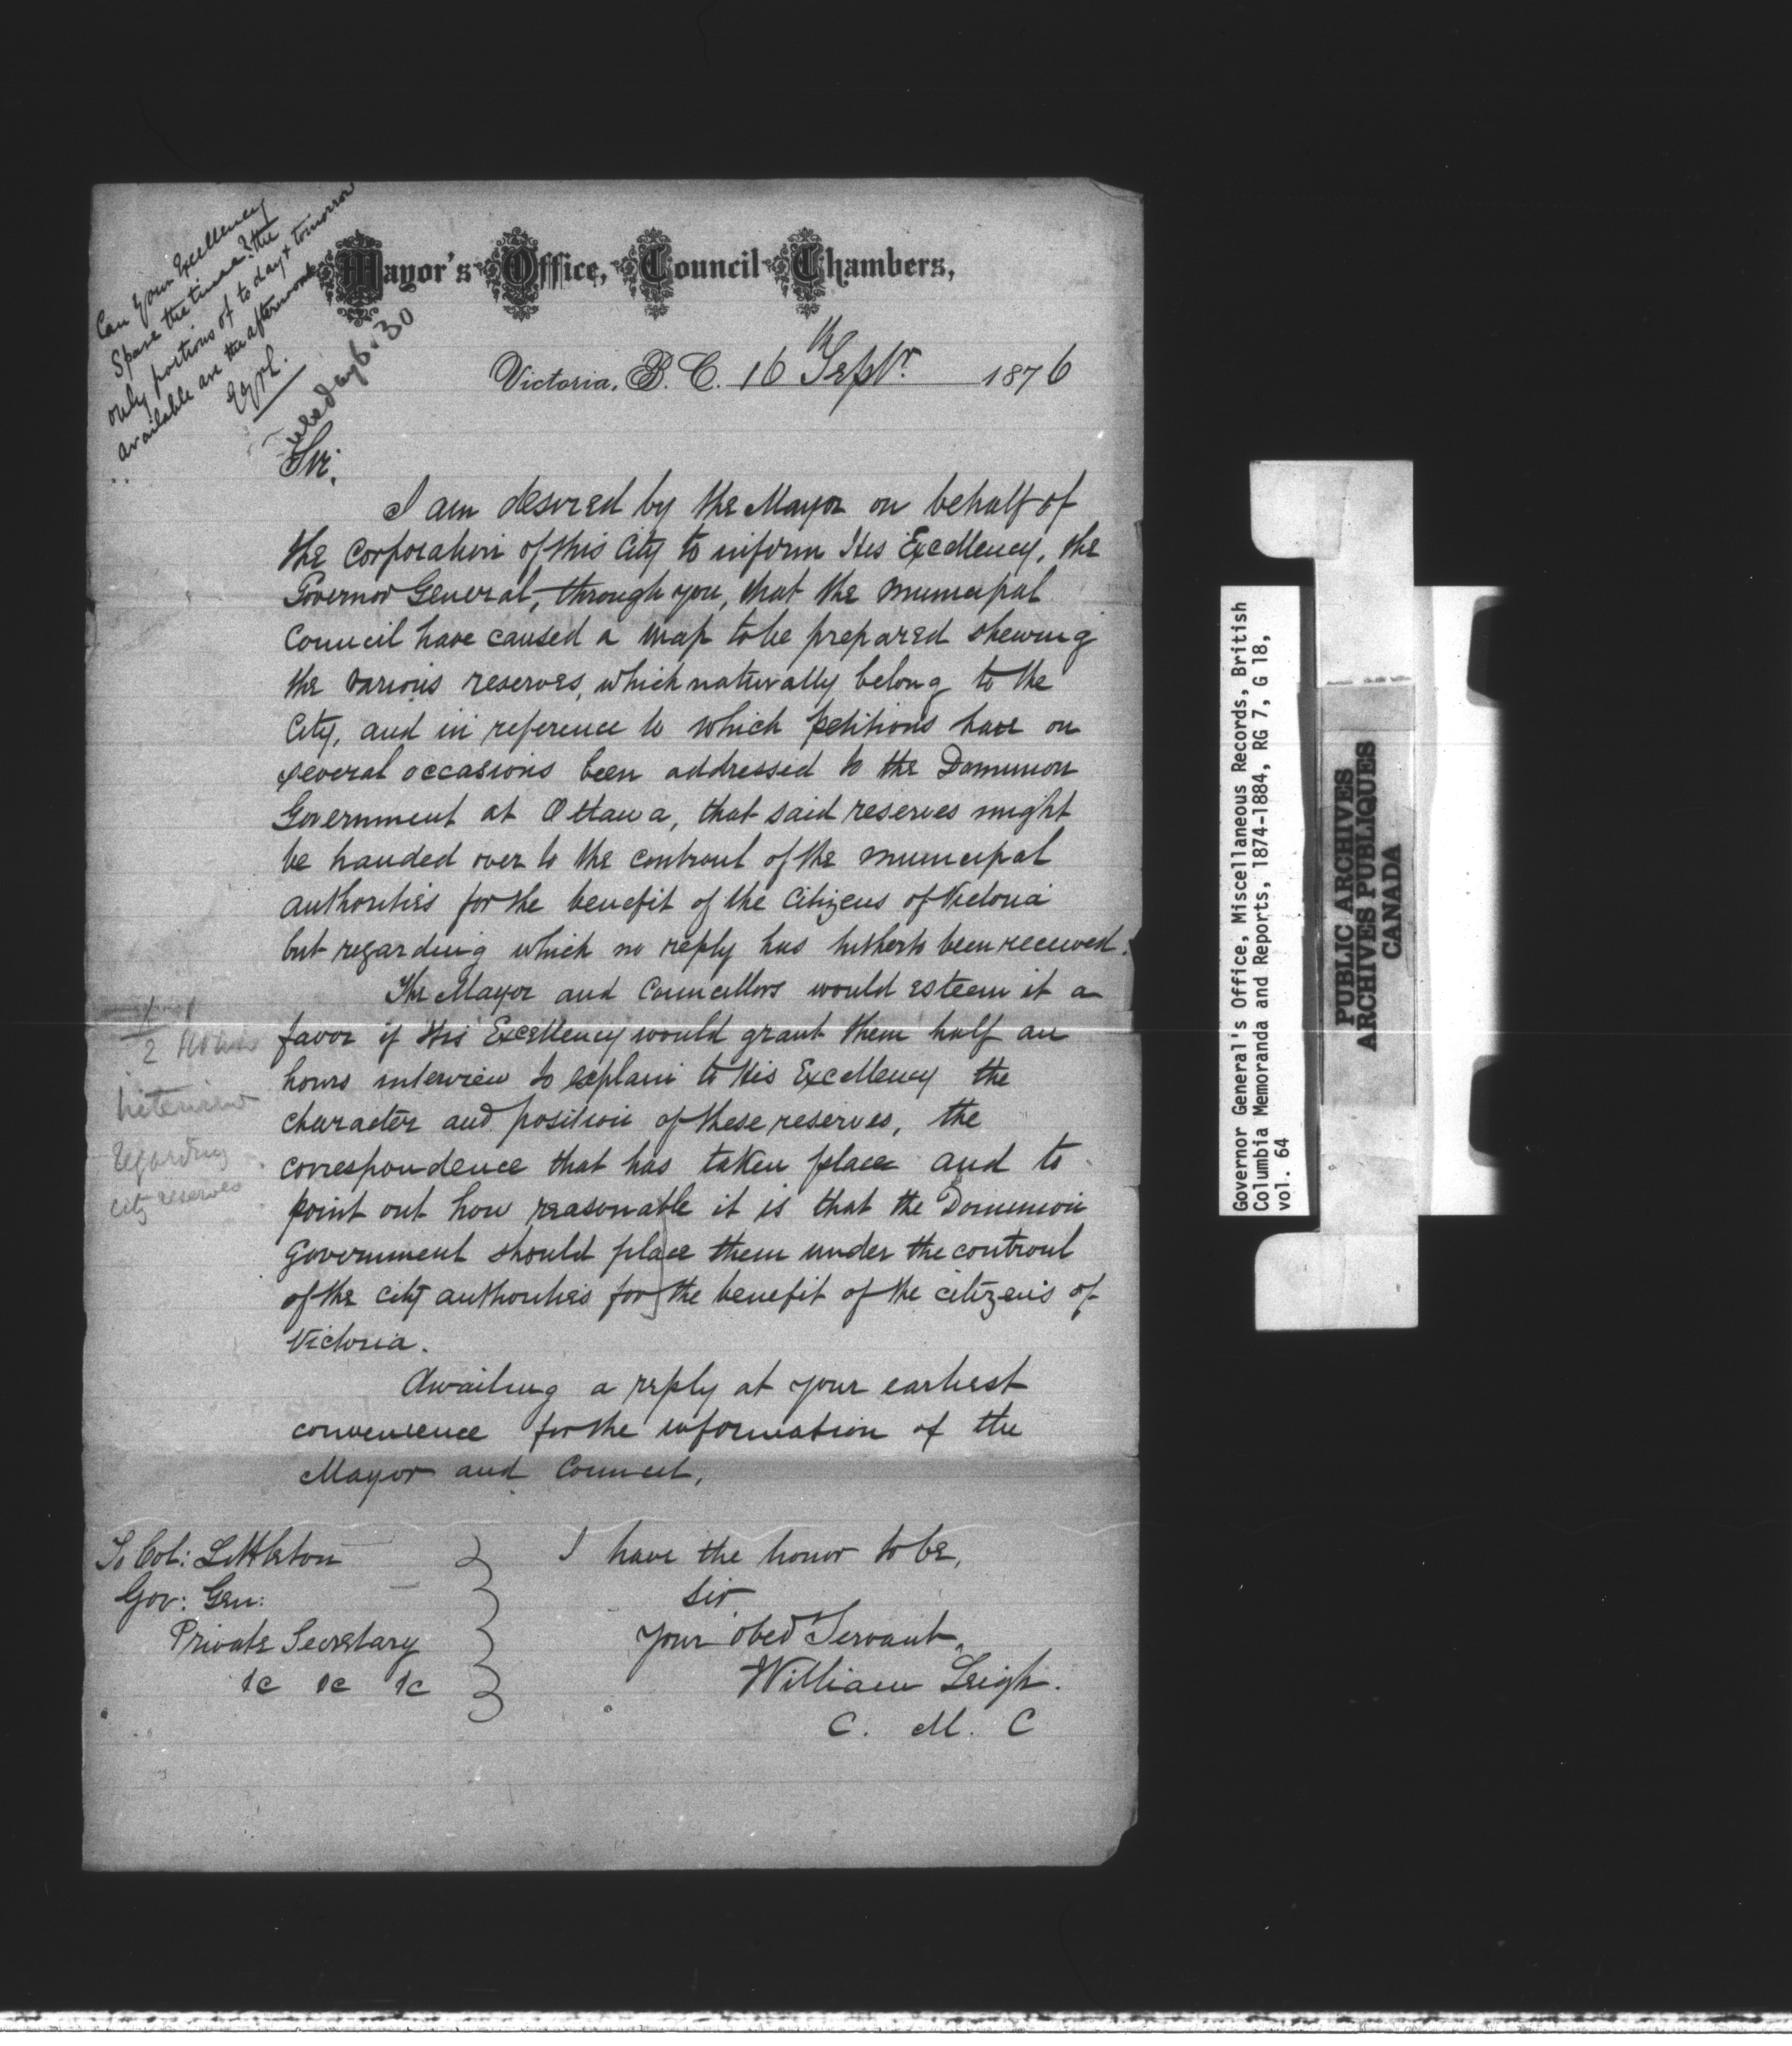 Can Your Excellency
Spare the time? the
only portions of to day & tomorrow
available are the afternoons
Tuesday 6.30
Mayor's Office, Council Chambers,
Victoria, B. C. 16th Septr. 1876
Sir,
I am desired by the Mayor on behalf of
the Corporation of this City to inform His Excellency, the
Governor General, through you, that the Municipal
Council have caused a map to be prepared shewing
the various reserves, which naturally belong to the
City, and in reference to which petitions have on
several occasions been addressed to the Dominion
Government at Ottawa, that said reserves might
be handed over to the controul of the municipal
authorities for the benefit of the Citizens of Victoria
but regarding which no reply has hitherto been received.
The Mayor and Councillors would esteem it a
favor if His Excellency would grant them half an
hours interview to explain to His Excellency the
character and position of these reserves, the
correspondence that has taken place and to
point out how reasonable it is that the Dominion
Government should place them under the controul
of the city authorities for the benefit of the citizens of
Victoria.
1/2 hour
interview
regarding
city reserves
Awaiting a reply at your earliest
convenience for the information of the
Mayor and Council,
I have the honor to be,
Sir,
Your obed Servant,
William Leigh.
C. M. C
To Col: Littleton
Gov: Gen:
Private Secretary
&c &c &c
Governor General's Office, Miscellaneous Records, British
Columbia Memoranda and Reports, 1874-1884, RG 7, G 18,
vol. 64
PUBLIC ARCHIVES
ARCHIVES PUBLIQUES
CANADA